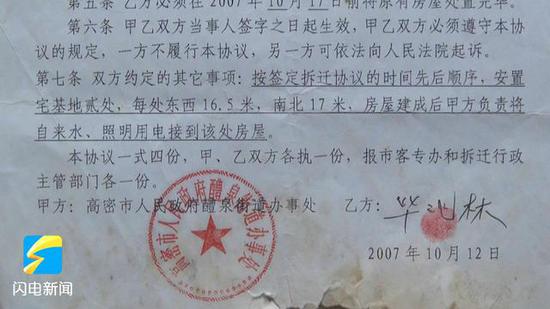 第五条 乙方必须在 2007 年 10 月 17 日前将原有房屋处置完毕。
第六条 甲乙双方当事人签字之日起生效，甲乙双方必须遵守本协
议的规定，一方不履行本协议，另一方可依法向人民法院起诉。
第七条 双方约定的其它事项：按签定拆迁协议的时间先后顺序，安置
宅基地贰处，每处东西 16.5 米，南北 17 米、房屋建成后甲方负责将
自来水、照明用电接到该处房屋。
本协议一式四份，甲、乙双方各执一份，报市客专办和拆迁行政
主管部门各一份。
甲方：高密市人民政府醴泉街道办事处 乙方：
高密市人民政府醴泉街道办事处
2007 年 10 月 12 日
闪电新闻